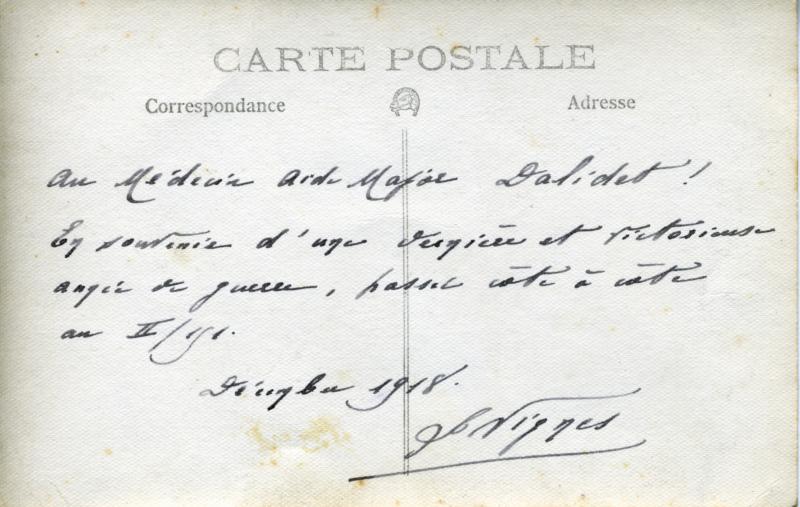 CARTE POSTALE
Correspondance Adresse
Au Médecin Aide Major Dalidet !
En souvenir d'une dernière et victorieuse
année de guerre, passée côte à côte
au II/151.
Décembre 1918.
Vignes